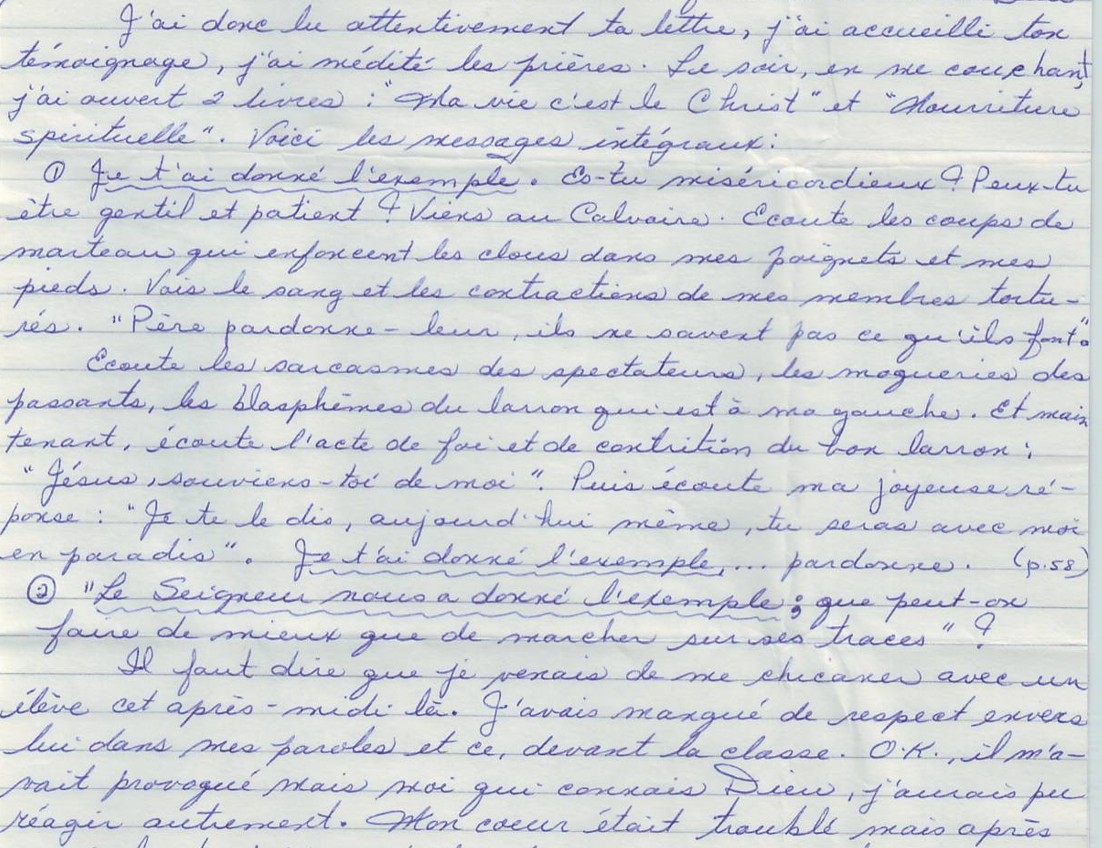 J'ai donc lu attentivement ta lettre, j'ai accueilli ton
témoignage, j'ai médité les prières. Le soir, en me couchant,
j'ai ouvert 2 livres : "Ma vie c'est le Christ" et "Nourriture
spirituelle". Voici les messages intégraux :
① Je t'ai donné l'exemple. Es-tu miséricordieux ? Peux-tu
être gentil et patient ? Viens au Calvaire. Ecoute les coups de
marteau qui enfoncent les clous dans mes poignets et mes
pieds. Vois le sang et les contractions de mes membres tortu-
rés. "Père pardonne-leur, ils ne savent pas ce qu'ils font".
Ecoute les sarcasmes des spectateurs, les moqueries des
passants, les blasphèmes du larron qui est à ma gauche. Et main
tenant, écoute l'acte de foi et de contrition du bon larron :
"Jésus, souviens-toi de moi". Puis écoute ma joyeuse ré-
ponse : "Je te le dis, aujourd'hui même, tu seras avec moi
en paradis". Je t'ai donné l'exemple,... pardonne. (p.58)
② "Le Seigneur nous a donné l'exemple ; que peut-on
faire de mieux que de marcher sur ses traces" ?
Il faut dire que je venais de me chicaner avec un
élève cet après-midi là. J'avais manqué de respect envers
lui dans mes paroles et ce, devant la classe. O.K., il m'a-
vait provoqué mais moi qui connais Dieu, j'aurais pu
réagir autrement. Mon coeur était troublé mais après